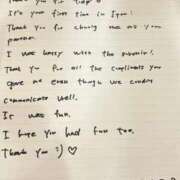 Thank you for today
It's your first time in Izu!
Thank you for choosing me as your
partner.
I was happy with the souvenir!
Thank you for all the compliments you
gave me even though we couldn't
communicate well.
It was fun.
I hope you had fun too.
Thank you :) ♡